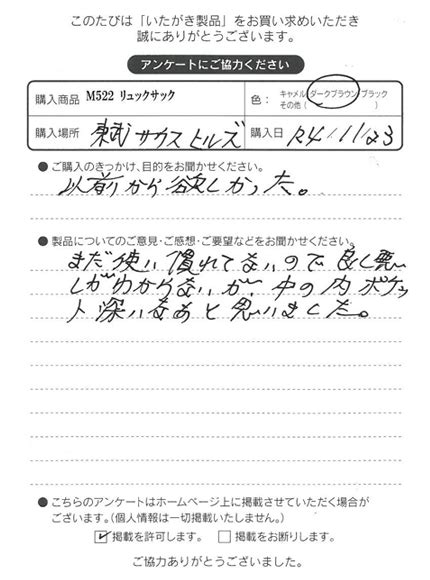 このたびは「いたがき製品」をお買い求めいただき
誠にありがとうございます。
アンケートにご協力ください
購入商品 M522 リュックサック 色： キャメル ダークブラウン ブラック
その他（ ）
購入場所 東武サウスヒルズ 購入日 R4/11/23
● ご購入のきっかけ、目的をお聞かせください。
以前から欲しかった。
● 製品についてのご意見・ご感想・ご要望などをお聞かせください。
まだ使い慣れてないので良し悪
しがわからないが、中の内ポケッ
ト深いなあと思いました。
● こちらのアンケートはホームページ上に掲載させていただく場合が
ございます。（個人情報は一切掲載いたしません。）
掲載を許可します。 掲載をお断りします。
ご協力ありがとうございました。